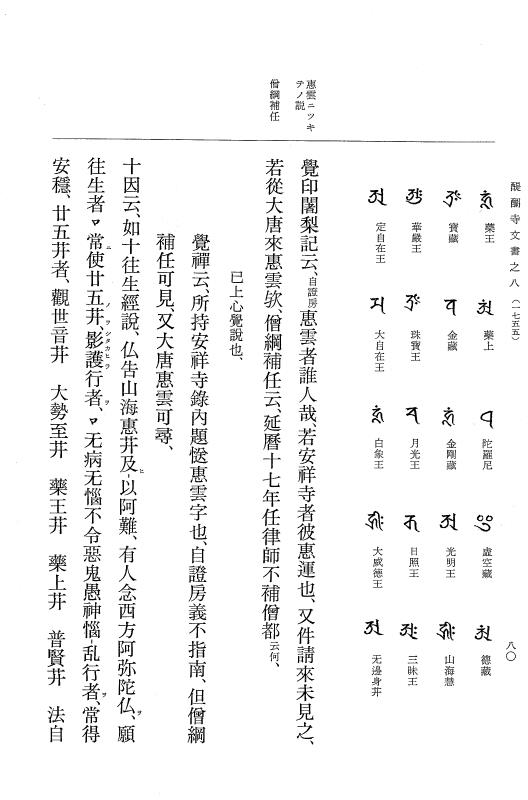 醍醐寺文書之八(一七五五)
八〇
藥王
藥上
陀羅尼
虛空藏
德藏
寶藏
金藏
金剛藏
光明王
山海慧
華嚴王
珠寶王
月光王
日照王
三昧王
定自在王
大自在王
白象王
大威德王
无邊身菩
惠雲ニツキ
テノ説
僧綱補任
覺印闍梨記云、自證房惠雲者誰人哉、若安祥寺者彼惠運也、又件請來未見之、
若從大唐來惠雲欤、僧綱補任云、延曆十七年任律師不補僧都云何、
已上心覺說也、
覺禪云、所持安祥寺錄內題惠雲字也、自證房義不指南、但僧綱
補任可見、又大唐惠雲可尋、
十因云、如十往生經說、仏告山海惠井及ヒ以阿難、有人念西方阿弥陀仏ヲ、願
往生者ニ、常使廿五井ノヲシタカヒテ、影護行者ヲ、无病无惱不令惡鬼愚神惱乱行者ヲ、常得
安穩、廿五井者、觀世音井 大勢至井 藥王井 藥上井 普賢井 法自